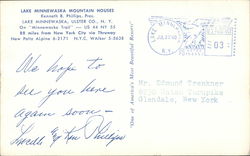 LAKE MINNEWASKA MOUNTAIN HOUSES
Kenneth B. Phillips, Pres.
LAKE MINNEWASKA, ULSTER CO., N. Y.
On "Minnewaska Trail" — US 44 NY 55
88 miles from New York City via Thruway
New Paltz Alpine 6-2171 N.Y.C. WAlker 5-2638
We hope to
see you here
again soon -
Lucille & Ken Phillips
"One of America's Most Beautiful Resorts"
N.Y.
Mr. Edmund
Turnpike
Glendale, New York